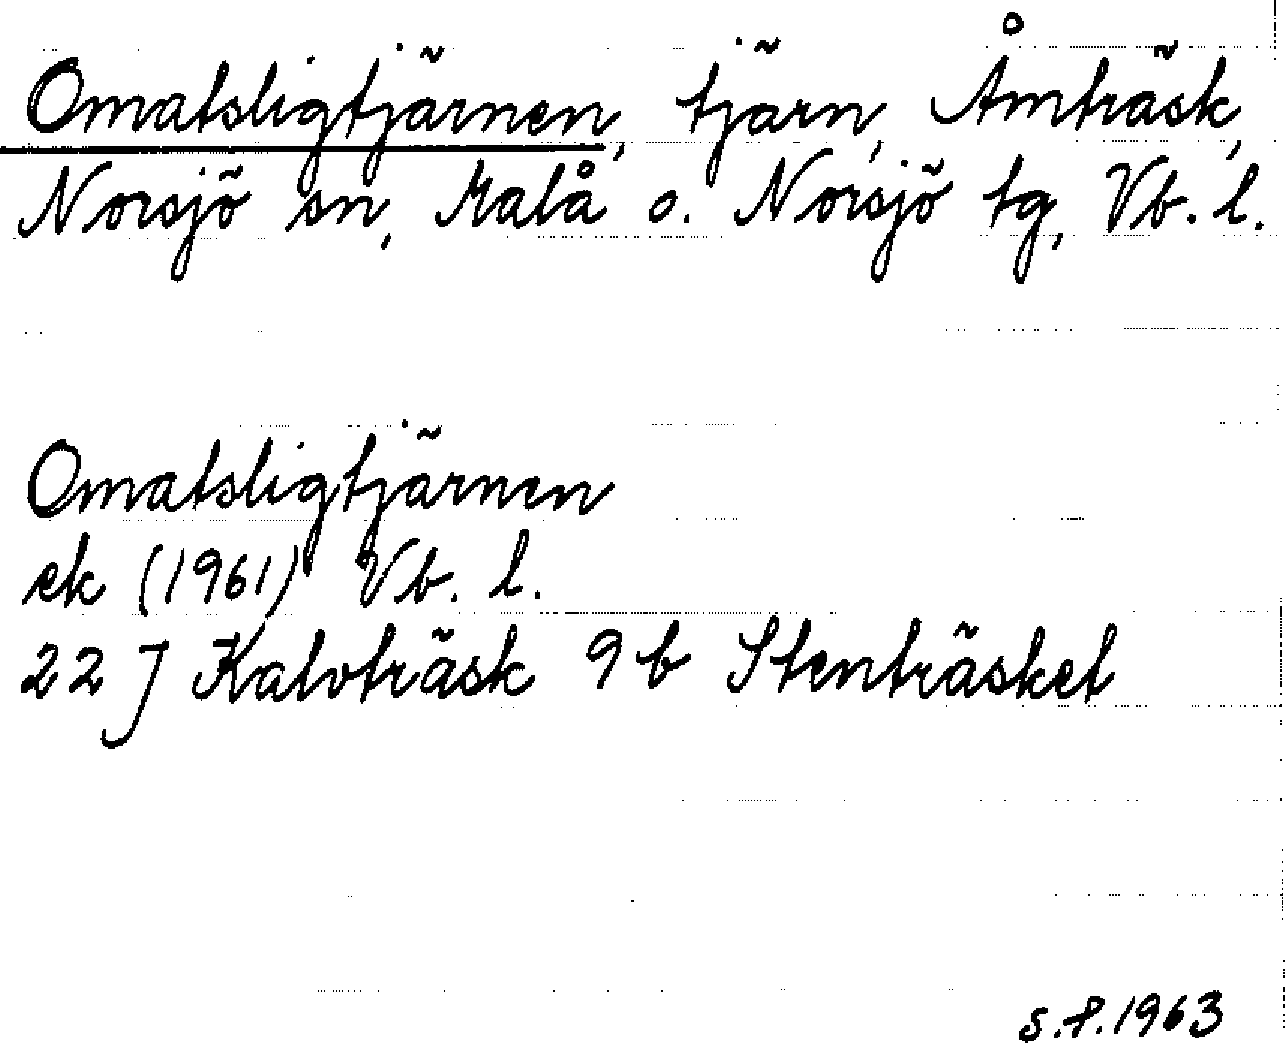 Omatsligtjärnen, tjärn, Åmträsk,
Norsjö sn, Malå o. Norsjö tg, Vb. l.
Omatsligtjärnen
ek (1961) Vb. l.
22 J Kalvträsk 9 b Stenträsket
S.P. 1963